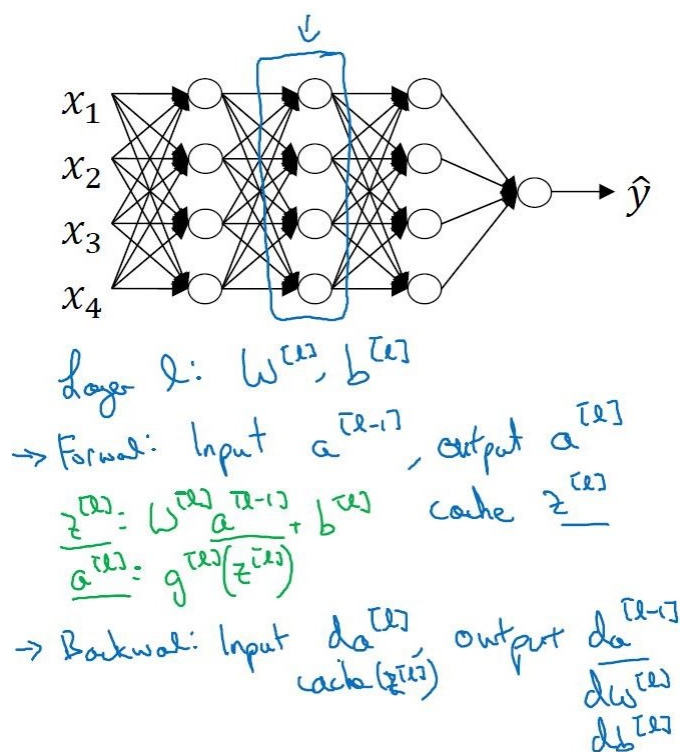 x₁
x₂
x₃
x₄
ŷ
Layer l: W^[l], b^[l]
→ Forward: Input a^[l-1], output a^[l]
cache z^[l]
z^[l] = W^[l] a^[l-1] + b^[l]
a^[l] = g^[l](z^[l])
→ Backward: Input da^[l], output da^[l-1]
cache(z^[l])
dW^[l]
db^[l]